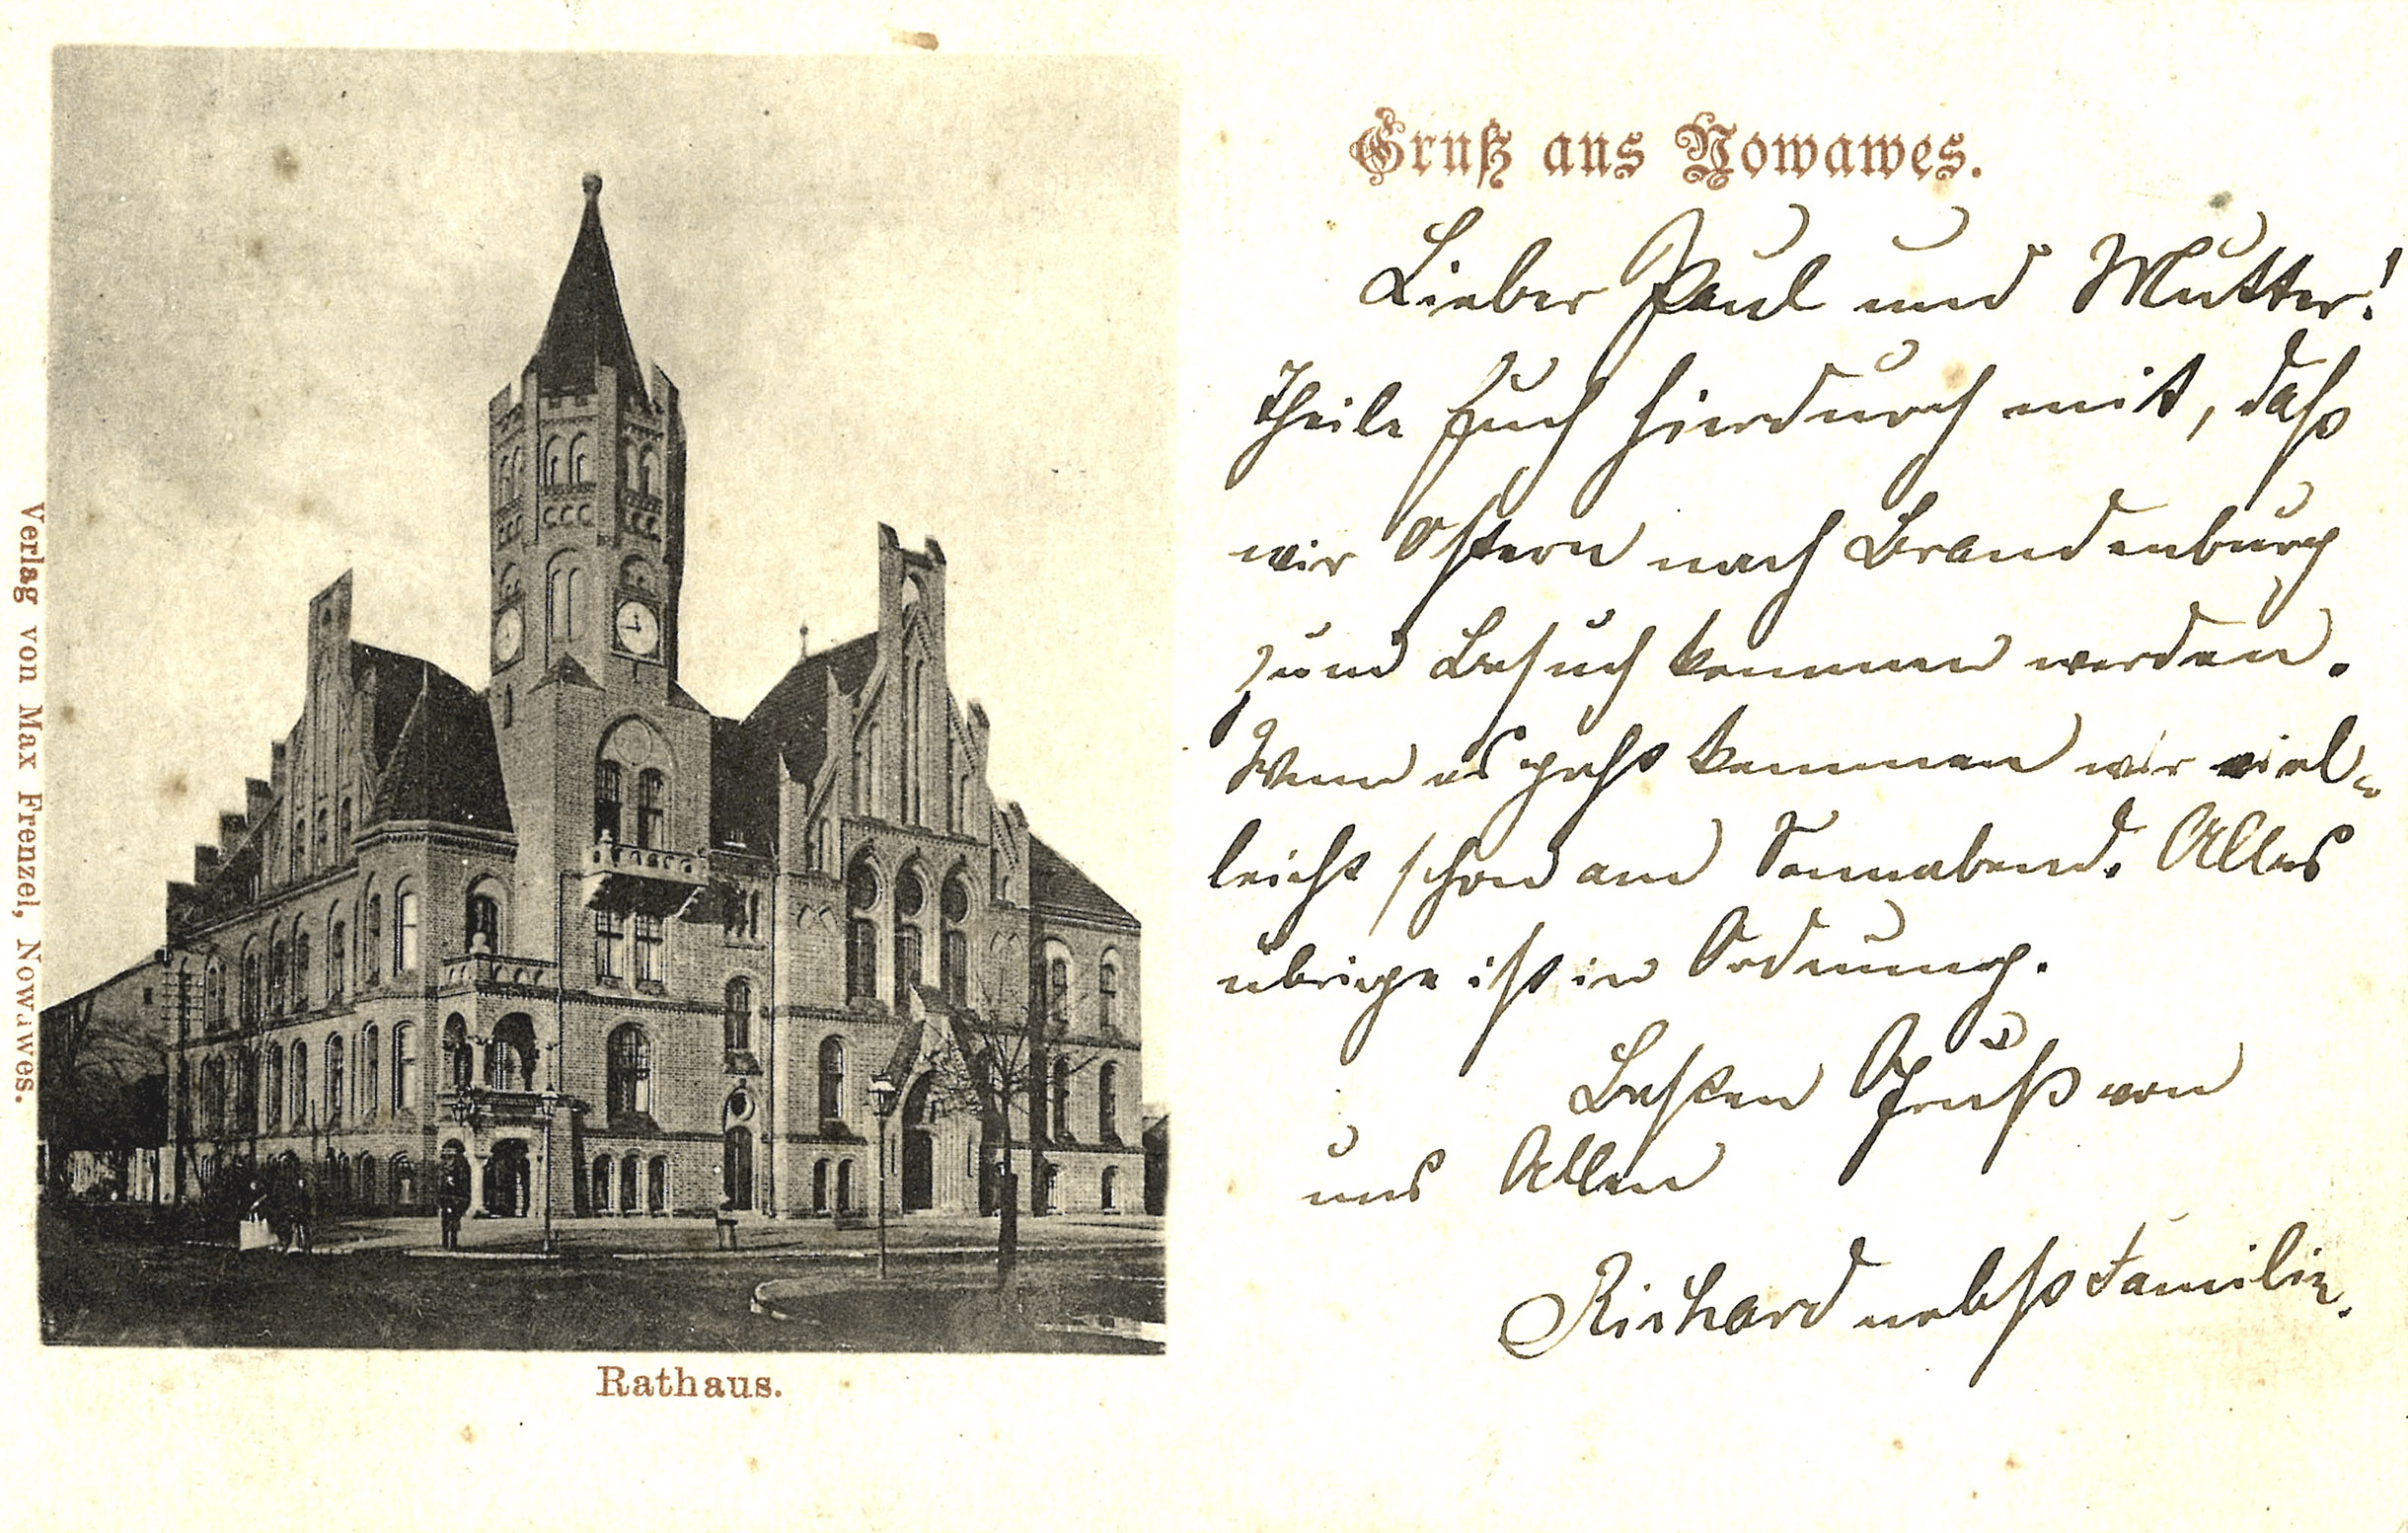 Gruß aus Nowawes.
Lieber Paul und Mutter!
Theile Euch hierdurch mit, daß
wir Ostern nach Brandenburg
zum Besuch kommen werden.
Wenn es geht kommen wir viel-
leicht schon am Sonnabend. Alles
übrige ist in Ordnung.
Besten Gruß von
uns Allen
Richard nebst Familie.
Rathaus.
Verlag von Max Frenzel, Nowawes.